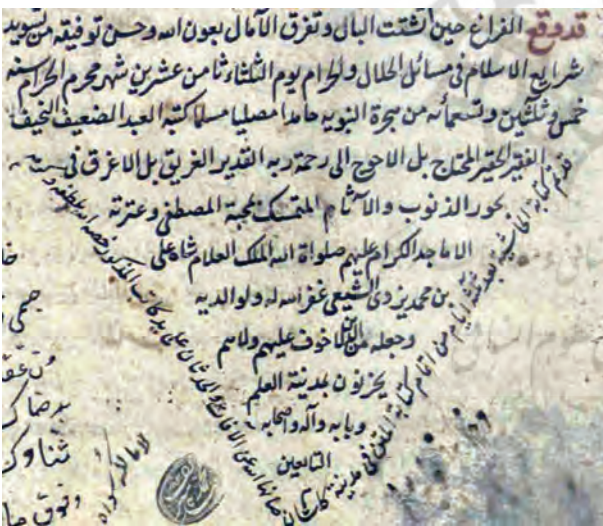 قد وقع الفراغ حين تشتت البال و تفرق الآمال بعون الله وحسن توفيقه من تسويد
شرايع الاسلام فى مسائل الحلال والحرام يوم الثلثاء ثامن عشرين شهر محرم الحرام سنه
خمس وثلثين وتسعمائه من هجرة النبويه حامدا مصليا مسلما كتبه العبد الضعيف النحيف
الفقير الحقير المحتاج بل الاحوج الى رحمة ربه القدير الغريق بل الاغرق فى
بحور الذنوب والآثام المتمسك بمحبة المصطفى وعترته
الاماجد الكرام عليهم صلواة الله الملك العلام شاه على
بن محمد يزدى الشيعى غفر الله له ولوالديه
وجعله من الذين لا خوف عليهم ولا هم
يحزنون بمدينة العلم
وبابه وآله وصحابه
التابعين
قد تم كتابة الحاشية بعد ثلثة ايام من اتمام كتابة المتن فى مدينة كاشان
صانها الله عن الآفات والحدثان على يد كاتب المذكور